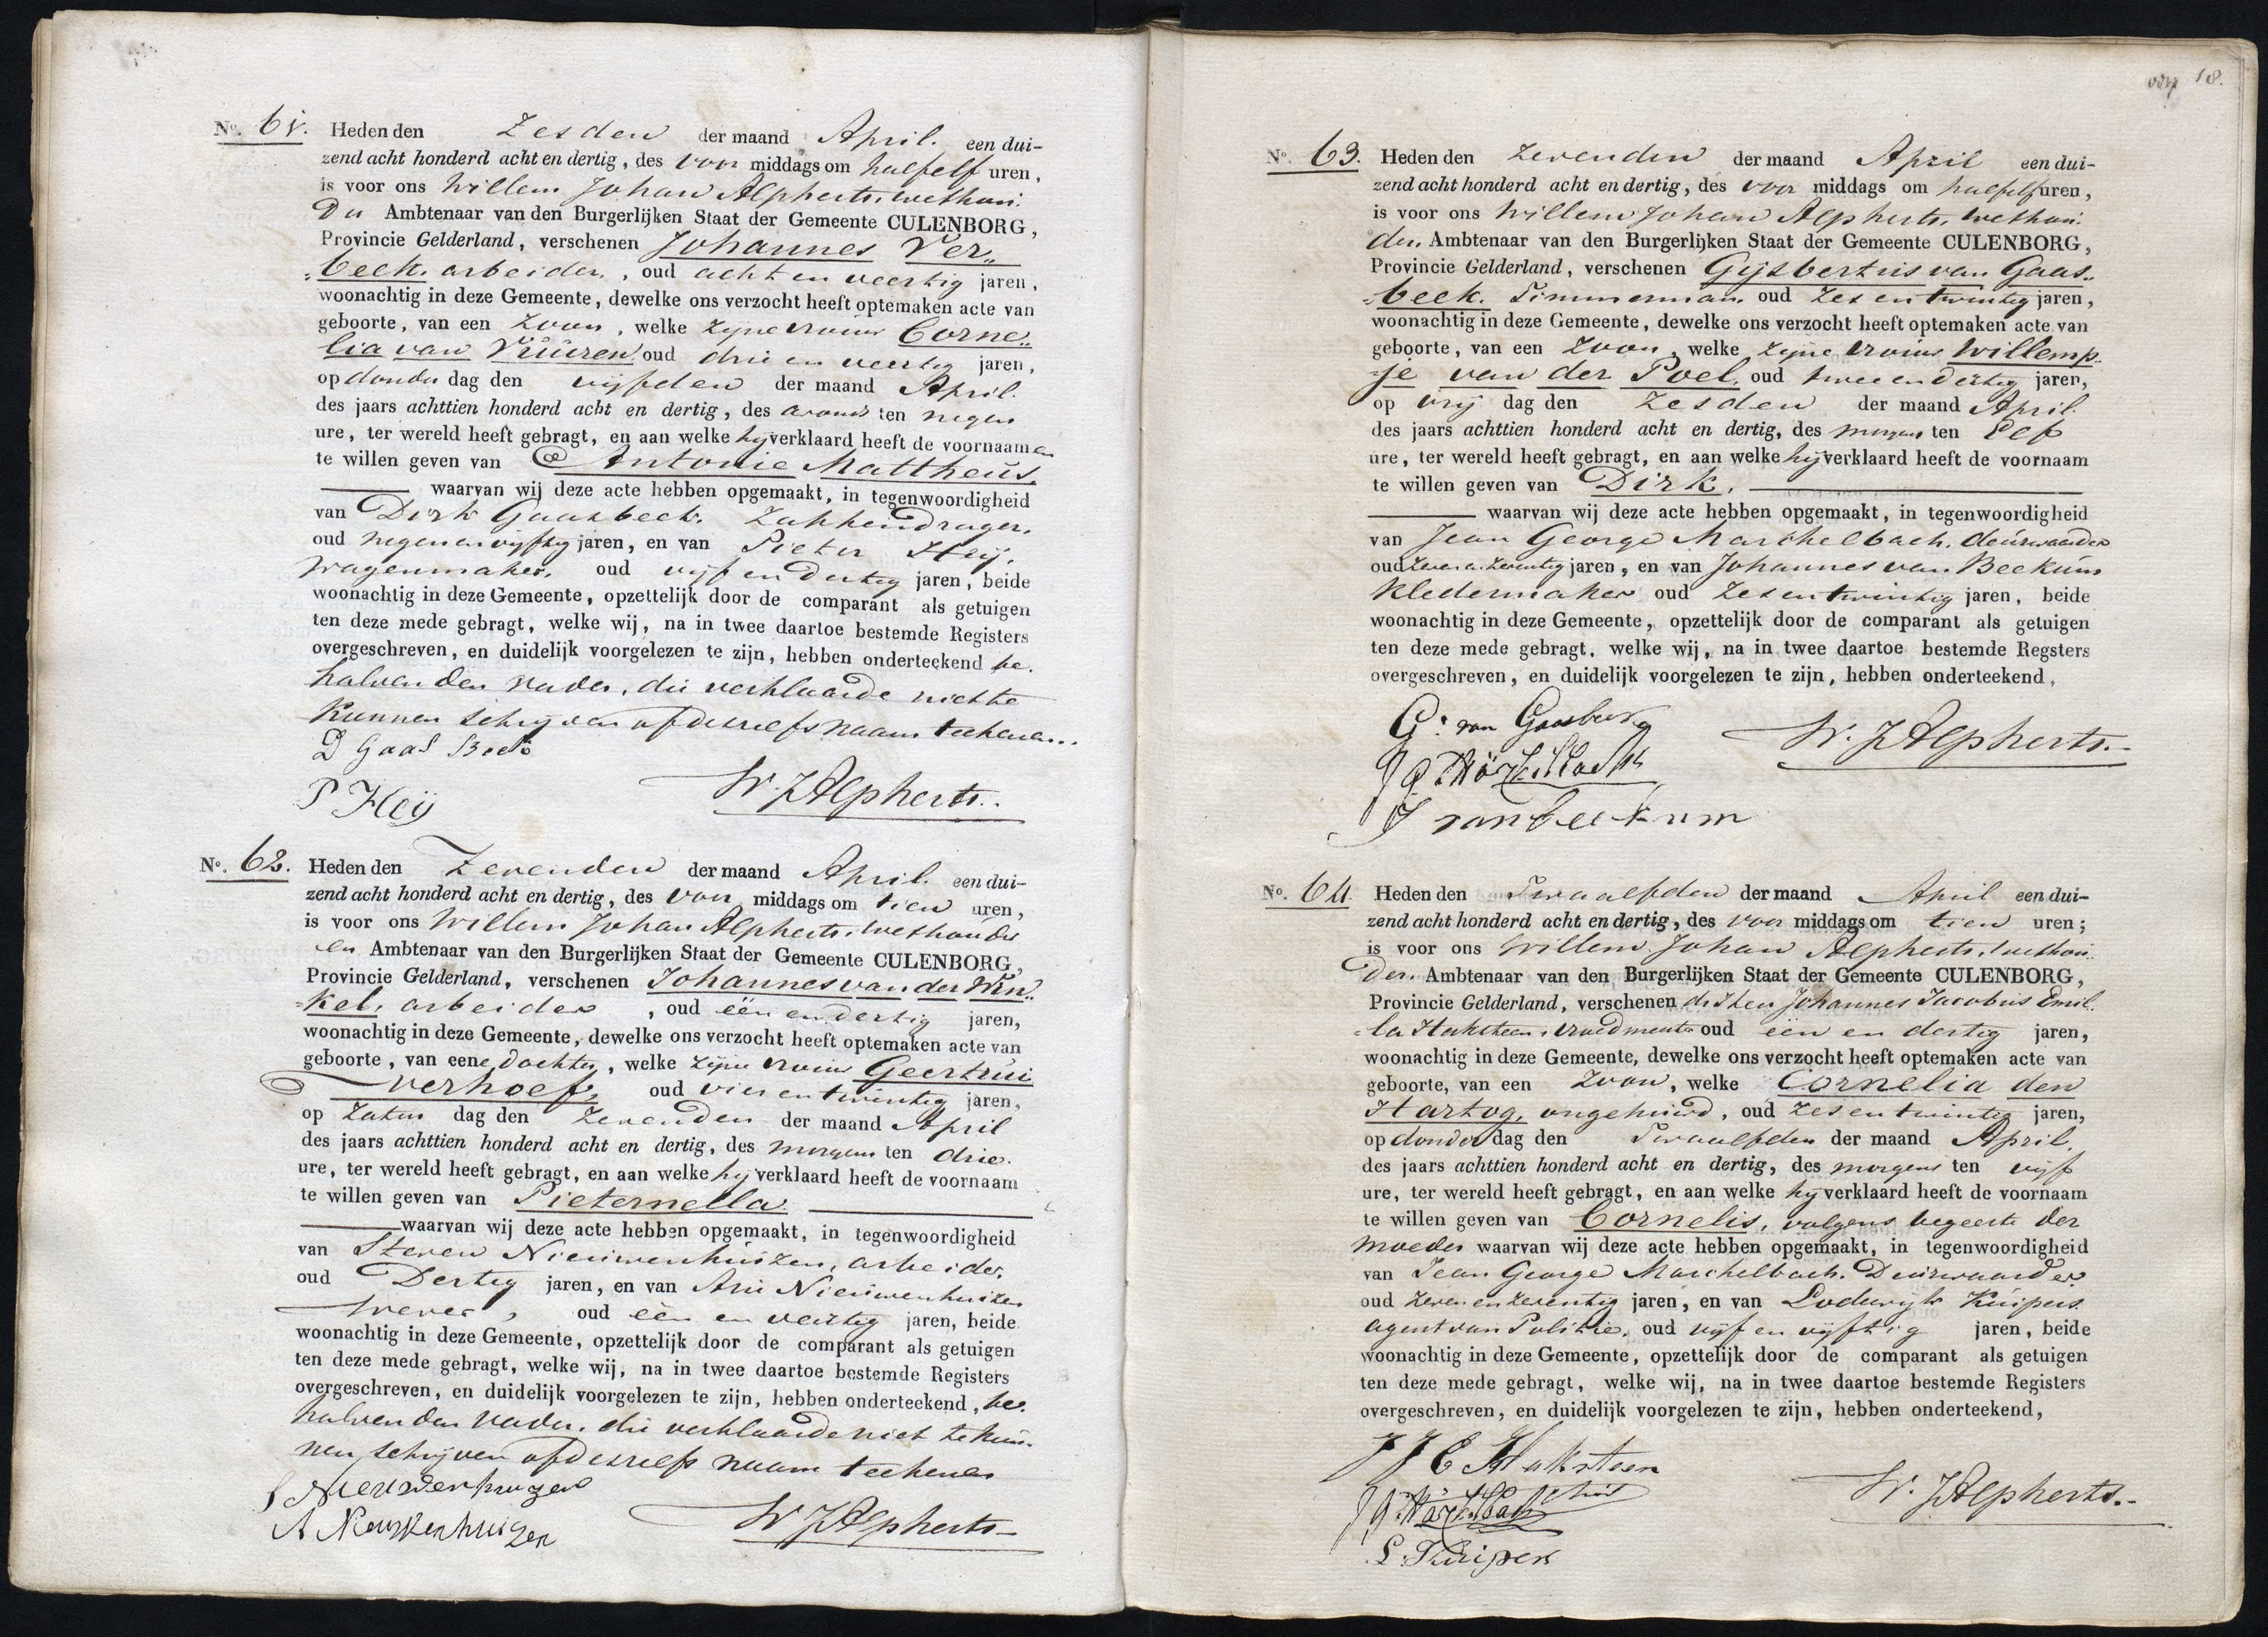 Nº. 61. Heden den Zesden der maand April. een dui-
zend acht honderd acht en dertig, des voor middags om halfelf uren,
is voor ons Willem Johan Alpherts, wethou.
der Ambtenaar van den Burgerlijken Staat der Gemeente CULENBORG,
Provincie Gelderland, verschenen Johannes Ver„
„beek. arbeider, oud acht en veertig jaren,
woonachtig in deze Gemeente, dewelke ons verzocht heeft optemaken acte van
geboorte, van een Zoon, welke zijne vrouw Corne„
lia van Vuuren, oud drie en veertig jaren,
op donder dag den vijfden der maand April.
des jaars achttien honderd acht en dertig, des avonds ten negen
ure, ter wereld heeft gebragt, en aan welke hij verklaard heeft de voornaamen
te willen geven van Antonie Mattheus.
waarvan wij deze acte hebben opgemaakt, in tegenwoordigheid
van Dirk Gaasbeek. Zakkendrager,
oud negenenvijftig jaren, en van Pieter Heij,
wagenmaker, oud vijf en dertig jaren, beide
woonachtig in deze Gemeente, opzettelijk door de comparant als getuigen
ten deze mede gebragt, welke wij, na in twee daartoe bestemde Registers
overgeschreven, en duidelijk voorgelezen te zijn, hebben onderteekend be.
halven den vader, die verklaarde niet te
kunnen schrijven of deszelfs naam teekenen..
D Gaas Beek
P Heÿ
W. J Alpherts..
Nº. 62. Heden den Zevenden der maand April. een dui-
zend acht honderd acht en dertig, des voor middags om tien uren,
is voor ons Willem Johan Alpherts, wethouder
en Ambtenaar van den Burgerlijken Staat der Gemeente CULENBORG,
Provincie Gelderland, verschenen Johannes van der Win„
„kel, arbeider, oud één en dertig jaren,
woonachtig in deze Gemeente, dewelke ons verzocht heeft optemaken acte van
geboorte, van eene dochter, welke zijne vrouw Geertrui
Verhoef, oud vier en twintig jaren,
op Zatur dag den Zevenden der maand April
des jaars achttien honderd acht en dertig, des morgens ten drie.
ure, ter wereld heeft gebragt, en aan welke hij verklaard heeft de voornaam
te willen geven van Pieternella.
waarvan wij deze acte hebben opgemaakt, in tegenwoordigheid
van Steven Nieuwenhuizen, arbeider,
oud Dertig jaren, en van Arie Nieuwenhuizen
Wever, oud één en veertig jaren, beide
woonachtig in deze Gemeente, opzettelijk door de comparant als getuigen
ten deze mede gebragt, welke wij, na in twee daartoe bestemde Registers
overgeschreven, en duidelijk voorgelezen te zijn, hebben onderteekend, be.
halven den vader, die verklaarde niet te kun.
nen schrijven of deszelfs naam teekenen
S Nieuwenhuizen
A Nieuwenhuizen
W J Alpherts
18.
Nº. 63. Heden den Zevenden der maand April een dui-
zend acht honderd acht en dertig, des voor middags om halfelf uren,
is voor ons Willem Johan Alpherts, wethou.
der. Ambtenaar van den Burgerlijken Staat der Gemeente CULENBORG,
Provincie Gelderland, verschenen Gijsbertus van Gaas„
„beek. Timmerman, oud Zes en twintig jaren,
woonachtig in deze Gemeente, dewelke ons verzocht heeft optemaken acte van
geboorte, van een Zoon, welke zijne vrouw Willemp„
„je van der Poel, oud twee en dertig jaren,
op vrij dag den Zesden der maand April.
des jaars achttien honderd acht en dertig, des morgens ten Elf
ure, ter wereld heeft gebragt, en aan welke hij verklaard heeft de voornaam
te willen geven van Dirk.
waarvan wij deze acte hebben opgemaakt, in tegenwoordigheid
van Jean George Marchelbach, deurwaarder
oud zeven en zeventig jaren, en van Johannes van Beekum
Kledermaker oud Zes en twintig jaren, beide
woonachtig in deze Gemeente, opzettelijk door de comparant als getuigen
ten deze mede gebragt, welke wij, na in twee daartoe bestemde Regsters
overgeschreven, en duidelijk voorgelezen te zijn, hebben onderteekend,
G: van Gaasbeek
J van beekum
W. J Alpherts.
Nº. 64. Heden den Twaalfden der maand April een dui-
zend acht honderd acht en dertig, des voor middags om tien uren;
is voor ons Willem Johan Alpherts, wethou.
der. Ambtenaar van den Burgerlijken Staat der Gemeente CULENBORG,
Provincie Gelderland, verschenen de Heer Johannes Jacobus Emil.
la Haksteen, vroedmeester oud één en dertig jaren,
woonachtig in deze Gemeente, dewelke ons verzocht heeft optemaken acte van
geboorte, van een Zoon, welke Cornelia den
Hartog, ongehuwd, oud Zes en twintig jaren,
op donder dag den Twaalfden der maand April.
des jaars achttien honderd acht en dertig, des morgens ten vijf
ure, ter wereld heeft gebragt, en aan welke hij verklaard heeft de voornaam
te willen geven van Cornelis, volgens begeerte der
moeder waarvan wij deze acte hebben opgemaakt, in tegenwoordigheid
van Jean George Marchelbach. Deurwaarder
oud zeven en zeventig jaren, en van Lodewijk Kuipers
agent van Politie, oud vijf en vijftig jaren, beide
woonachtig in deze Gemeente, opzettelijk door de comparant als getuigen
ten deze mede gebragt, welke wij, na in twee daartoe bestemde Registers
overgeschreven, en duidelijk voorgelezen te zijn, hebben onderteekend,
J J E Haksteen
L. Kuipers
W. J Alpherts.